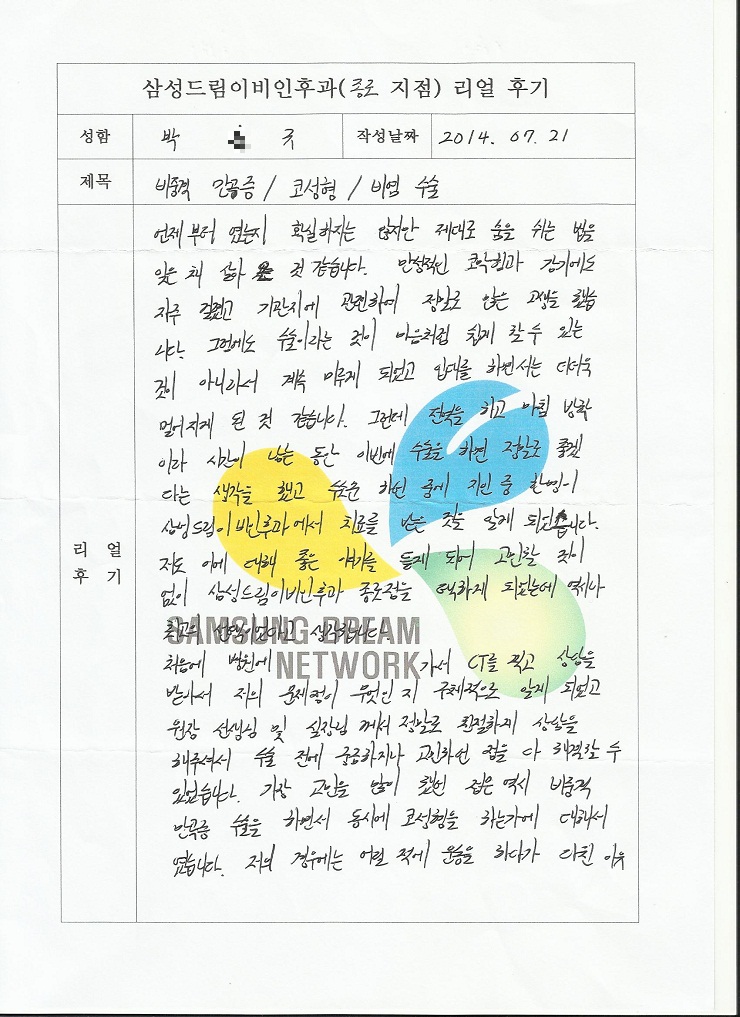 삼성드림이비인후과(종로 지점) 리얼 후기
성함 박 규 작성날짜 2014. 07. 21
제목 비중격 만곡증 / 코성형 / 비염 수술
리 얼
후 기
언제부터 였는지 확실하지는 않지만 제대로 숨을 쉬는 법을
잊은 채 살아 온 것 같습니다. 만성적인 코막힘과 감기에도
자주 걸렸고 기관지에 관련하여 정말로 많은 고생을 했습
니다. 그럼에도 수술이라는 것이 마음처럼 쉽게 할 수 있는
것이 아니라서 계속 미루게 되었고 입대를 하면서는 더더욱
멀어지게 된 것 같습니다. 그런데 전역을 하고 아침 방학
이라 시간이 남는 동안 이번에 수술을 하면 정말로 좋겠
다는 생각을 했고 수소문 하던 중에 지인 중 한명이
삼성드림이비인후과에서 치료를 받은 것을 알게 되었습니다.
저도 이에 대해 좋은 얘기를 듣게 되어 고민할 것이
없이 삼성드림이비인후과 종로점을 택하게 되었는데 역시나
최고의 선택이었다고 생각합니다
SAMSUNG DREAM
NETWORK
처음에 병원에 가서 CT를 찍고 상담을
받아서 저의 문제점이 무엇인 지 구체적으로 알게 되었고
원장 선생님 및 실장님 께서 정말로 친절하게 상담을
해주셔서 수술 전에 궁금하거나 고민하던 점을 다 해결할 수
있었습니다. 가장 고민을 많이 했던 점은 역시 비중격
만곡증 수술을 하면서 동시에 코성형을 하는가에 대해서
였습니다. 저의 경우에는 어릴 적에 운동을 하다가 다친 이유